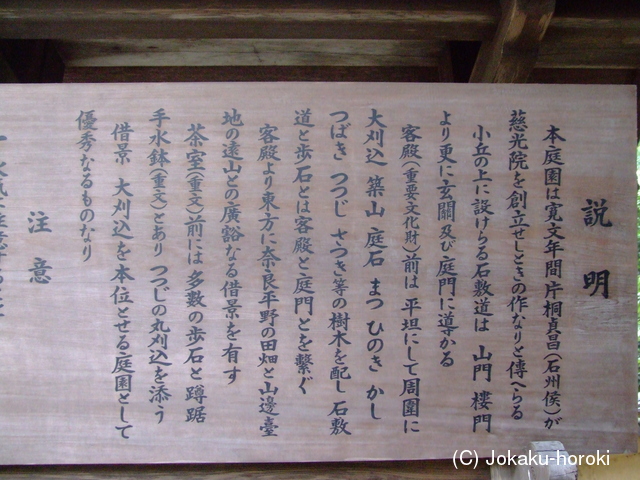 説明
本庭園は寛文年間片桐貞昌(石州侯)が
慈光院を創立せしときの作なりと傳へらる
小丘の上に設けらる石敷道は 山門 楼門
より更に玄關及び庭門に導かる
客殿(重要文化財)前は 平坦にして周圍に
大刈込 築山 庭石 まつ ひのき かし
つばき つつじ さつき等の樹木を配し 石敷
道と歩石とは客殿と庭門とを繋ぐ
客殿より東方に奈良平野の田畑と山邊臺
地の遠山との廣豁なる借景を有す
茶室(重文)前には 多数の歩石と蹲踞
手水鉢(重文)とあり つつじの丸刈込を添う
借景 大刈込を本位とせる庭園として
優秀なるものなり
注意
(C) Jokaku-horoki